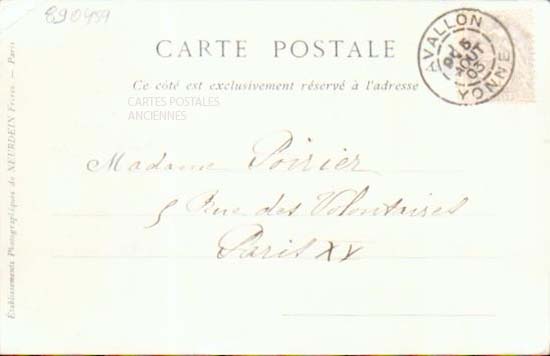 890459
CARTE POSTALE
Ce côté est exclusivement réservé à l'adresse
CARTES POSTALES
ANCIENNES
AVALLON
YONNE
Madame Poirier
5 Rue des Volontaires
Paris XV
Établissements Photographiques de NEURDEIN Frères. — Paris